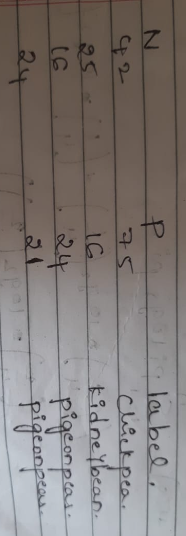 N P label.
42 75 chickpea.
25 16 kidneybean.
16 24 pigeonpeas.
24 21 pigeonpeas.